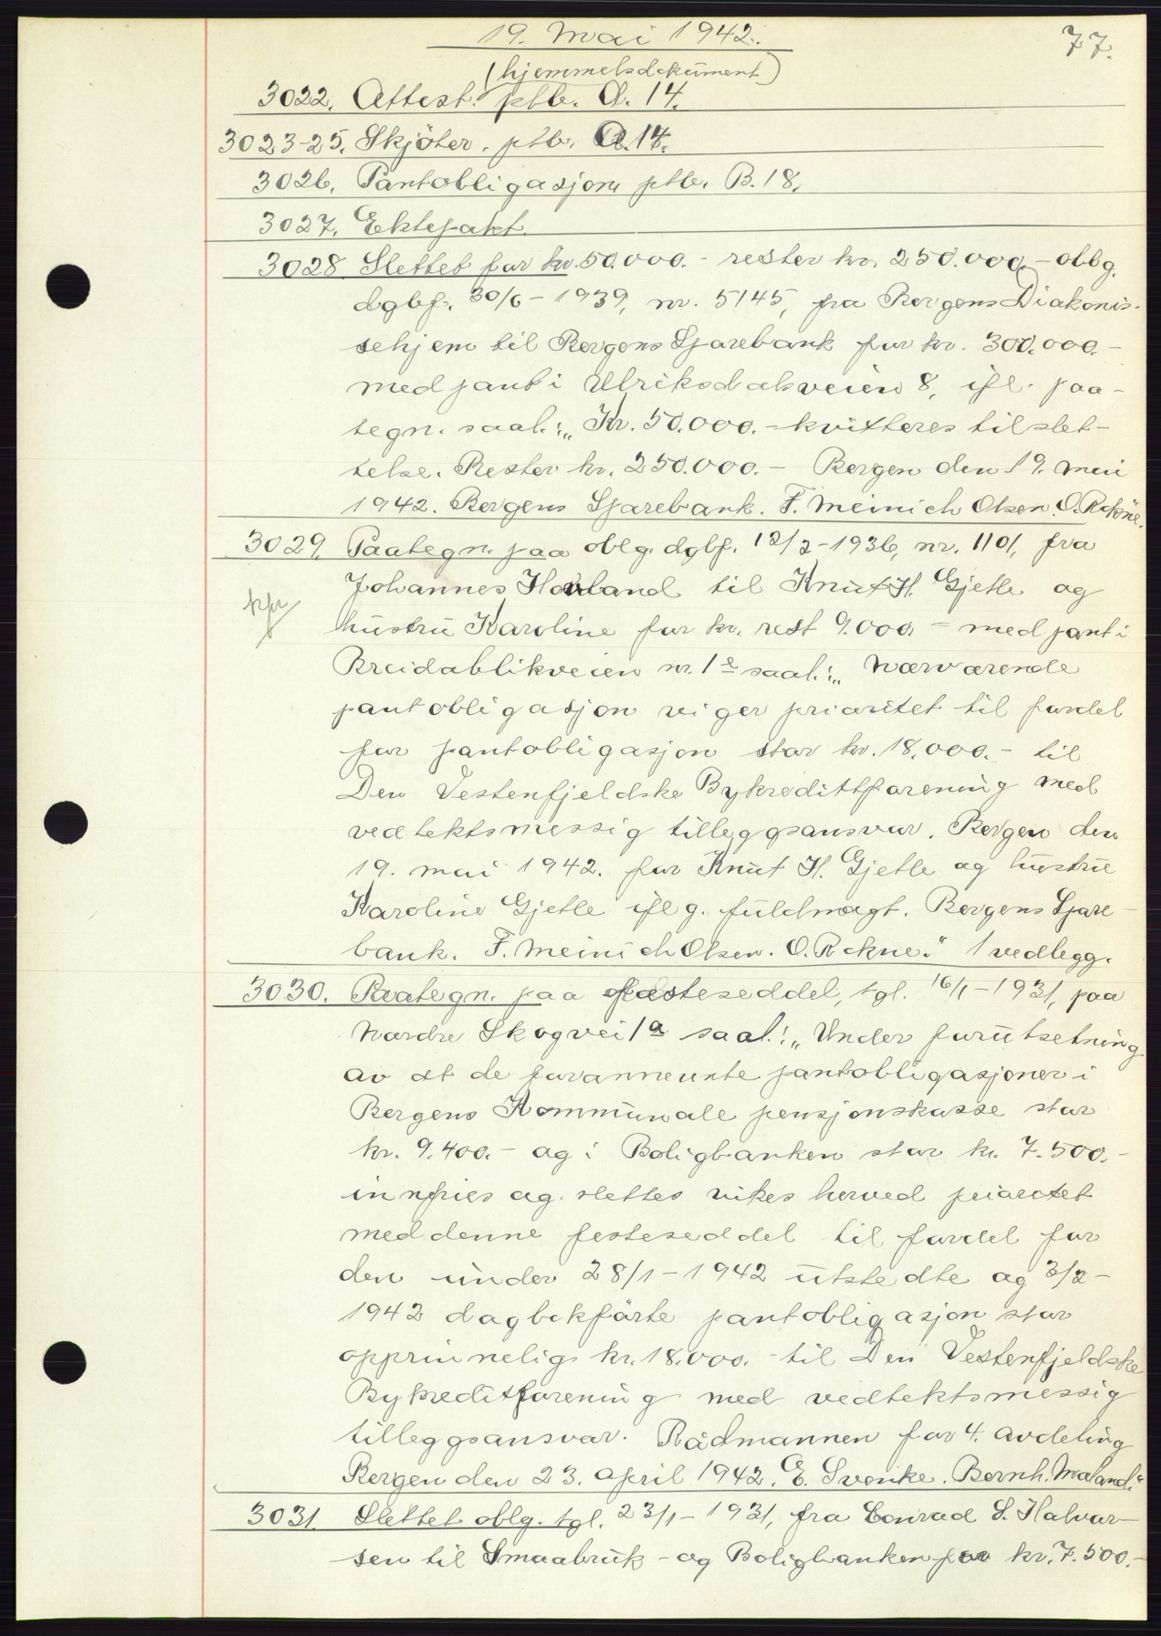 19. Mai 1942.
77.
(hjemmelsdokument)
3022. Attest. ptb. A. 14.
3023-25. Skjöter. ptb. A. 14.
3026. Pantobligasjon ptb. B. 18.
3027. Ektepakt.
3028 Slettet for kr. 50.000.- rester kr. 250.000.- oblg.
dgbf. 30/6-1939, nr. 5145, fra Bergens Diakonis-
sehjem til Bergens Sparebank for kr. 300.000.-
med pant i Ulriksdalsveien 8, ifl. paa-
tegn. saal.: „Kr. 50.000.- kvitteres til slet-
telse. Rester kr. 250.000.- Bergen den 19. mai
1942. Bergens Sparebank. F. Meinich Olsen. O. Rekne.
3029. Paategn. paa oblg. dgbf. 12/3-1936, nr. 1101, fra
Johannes Hovland til Knut H. Gjetle og
hustru Karoline for kr. rest 9.000.- med pant i
Breidablikveien nr. 12 saal.: „Nærværende
pantobligasjon viger prioritet til fordel
for pantobligasjon stor kr. 18.000.- til
Den Vestenfjeldske Bykredittforening med
vedtektsmessig tilleggsansvar. Bergen den
19. mai 1942. for Knut H. Gjetle og hustru
Karoline Gjetle iflg. fuldmagt. Bergens Spare-
bank. F. Meinich Olsen. O. Rekne." 1 vedlegg.
3030. Paategn. paa festeseddel, tgl. 16/1-1931, paa
Nordre Skogvei 1a saal.: „Under forutsetning
av at de forannevnte pantobligasjoner i
Bergens Kommunale pensjonskasse stor
kr. 9.400.- og i Boligbanken stor kr. 7.500.-
innfries og slettes vikes herved prioritet
med denne festeseddel til fordel for
den under 28/1-1942 utstedte og 3/2-
1942 dagbokförte pantobligasjon stor
opprinnelig kr. 18.000.- til Den Vestenfjeldske
Bykreditforening med vedtektsmessig
tilleggsansvar. Rådmannen for 4. avdeling
Bergen den 23. april 1942. E. Svenke. Bernh. Maland."
3031. Slettet oblg. tgl. 23/1-1931, fra Conrad S. Halvor-
sen til Smaabruk- og Boligbanken for kr. 7.500.-